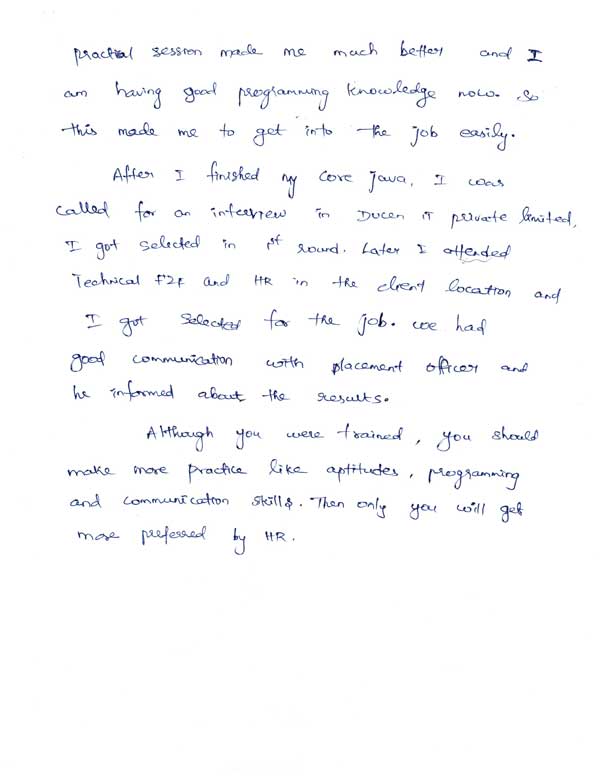 practial session made me much better and I
am having good programming knowledge now. So
this made me to get into the job easily.
After I finished my core java, I was
called for an interview in Ducen IT private limited,
I got selected in 1st round. Later I attended
Technical F2F and HR in the client location and
I got selected for the job. we had
good communication with placement officer and
he informed about the results.
Although you were trained, you should
make more practice like aptitudes, programming
and communication skills. Then only you will get
more preferred by HR.